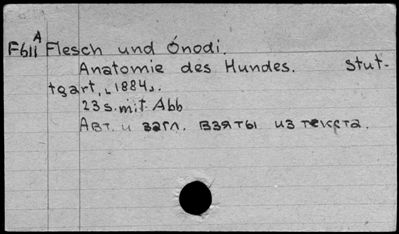 F611 A Flesch und Ónodi.
Anatomie des Hundes. Stut-
tgart, [1884].
23 s. mit Abb
Авт. и загл. взяты из текста.